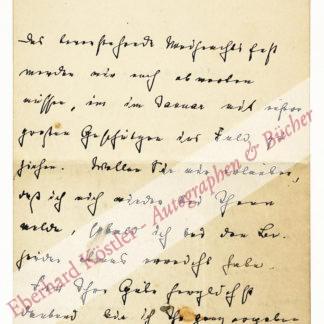 Das bevorstehende Weihnachtsfest
werden wir noch abwarten
müssen, um im Januar mit
großen Geschützen ins Feld zu
ziehen. Wollen Sie mir erlauben,
daß ich mich wieder bei Ihnen
melde, sobald ich bei den
etwas erreicht habe.
Für Ihre Güte herzlichst
dankend bin ich Ihr ganz ergebener
Eberhard Köstler - Autographen & Bücher